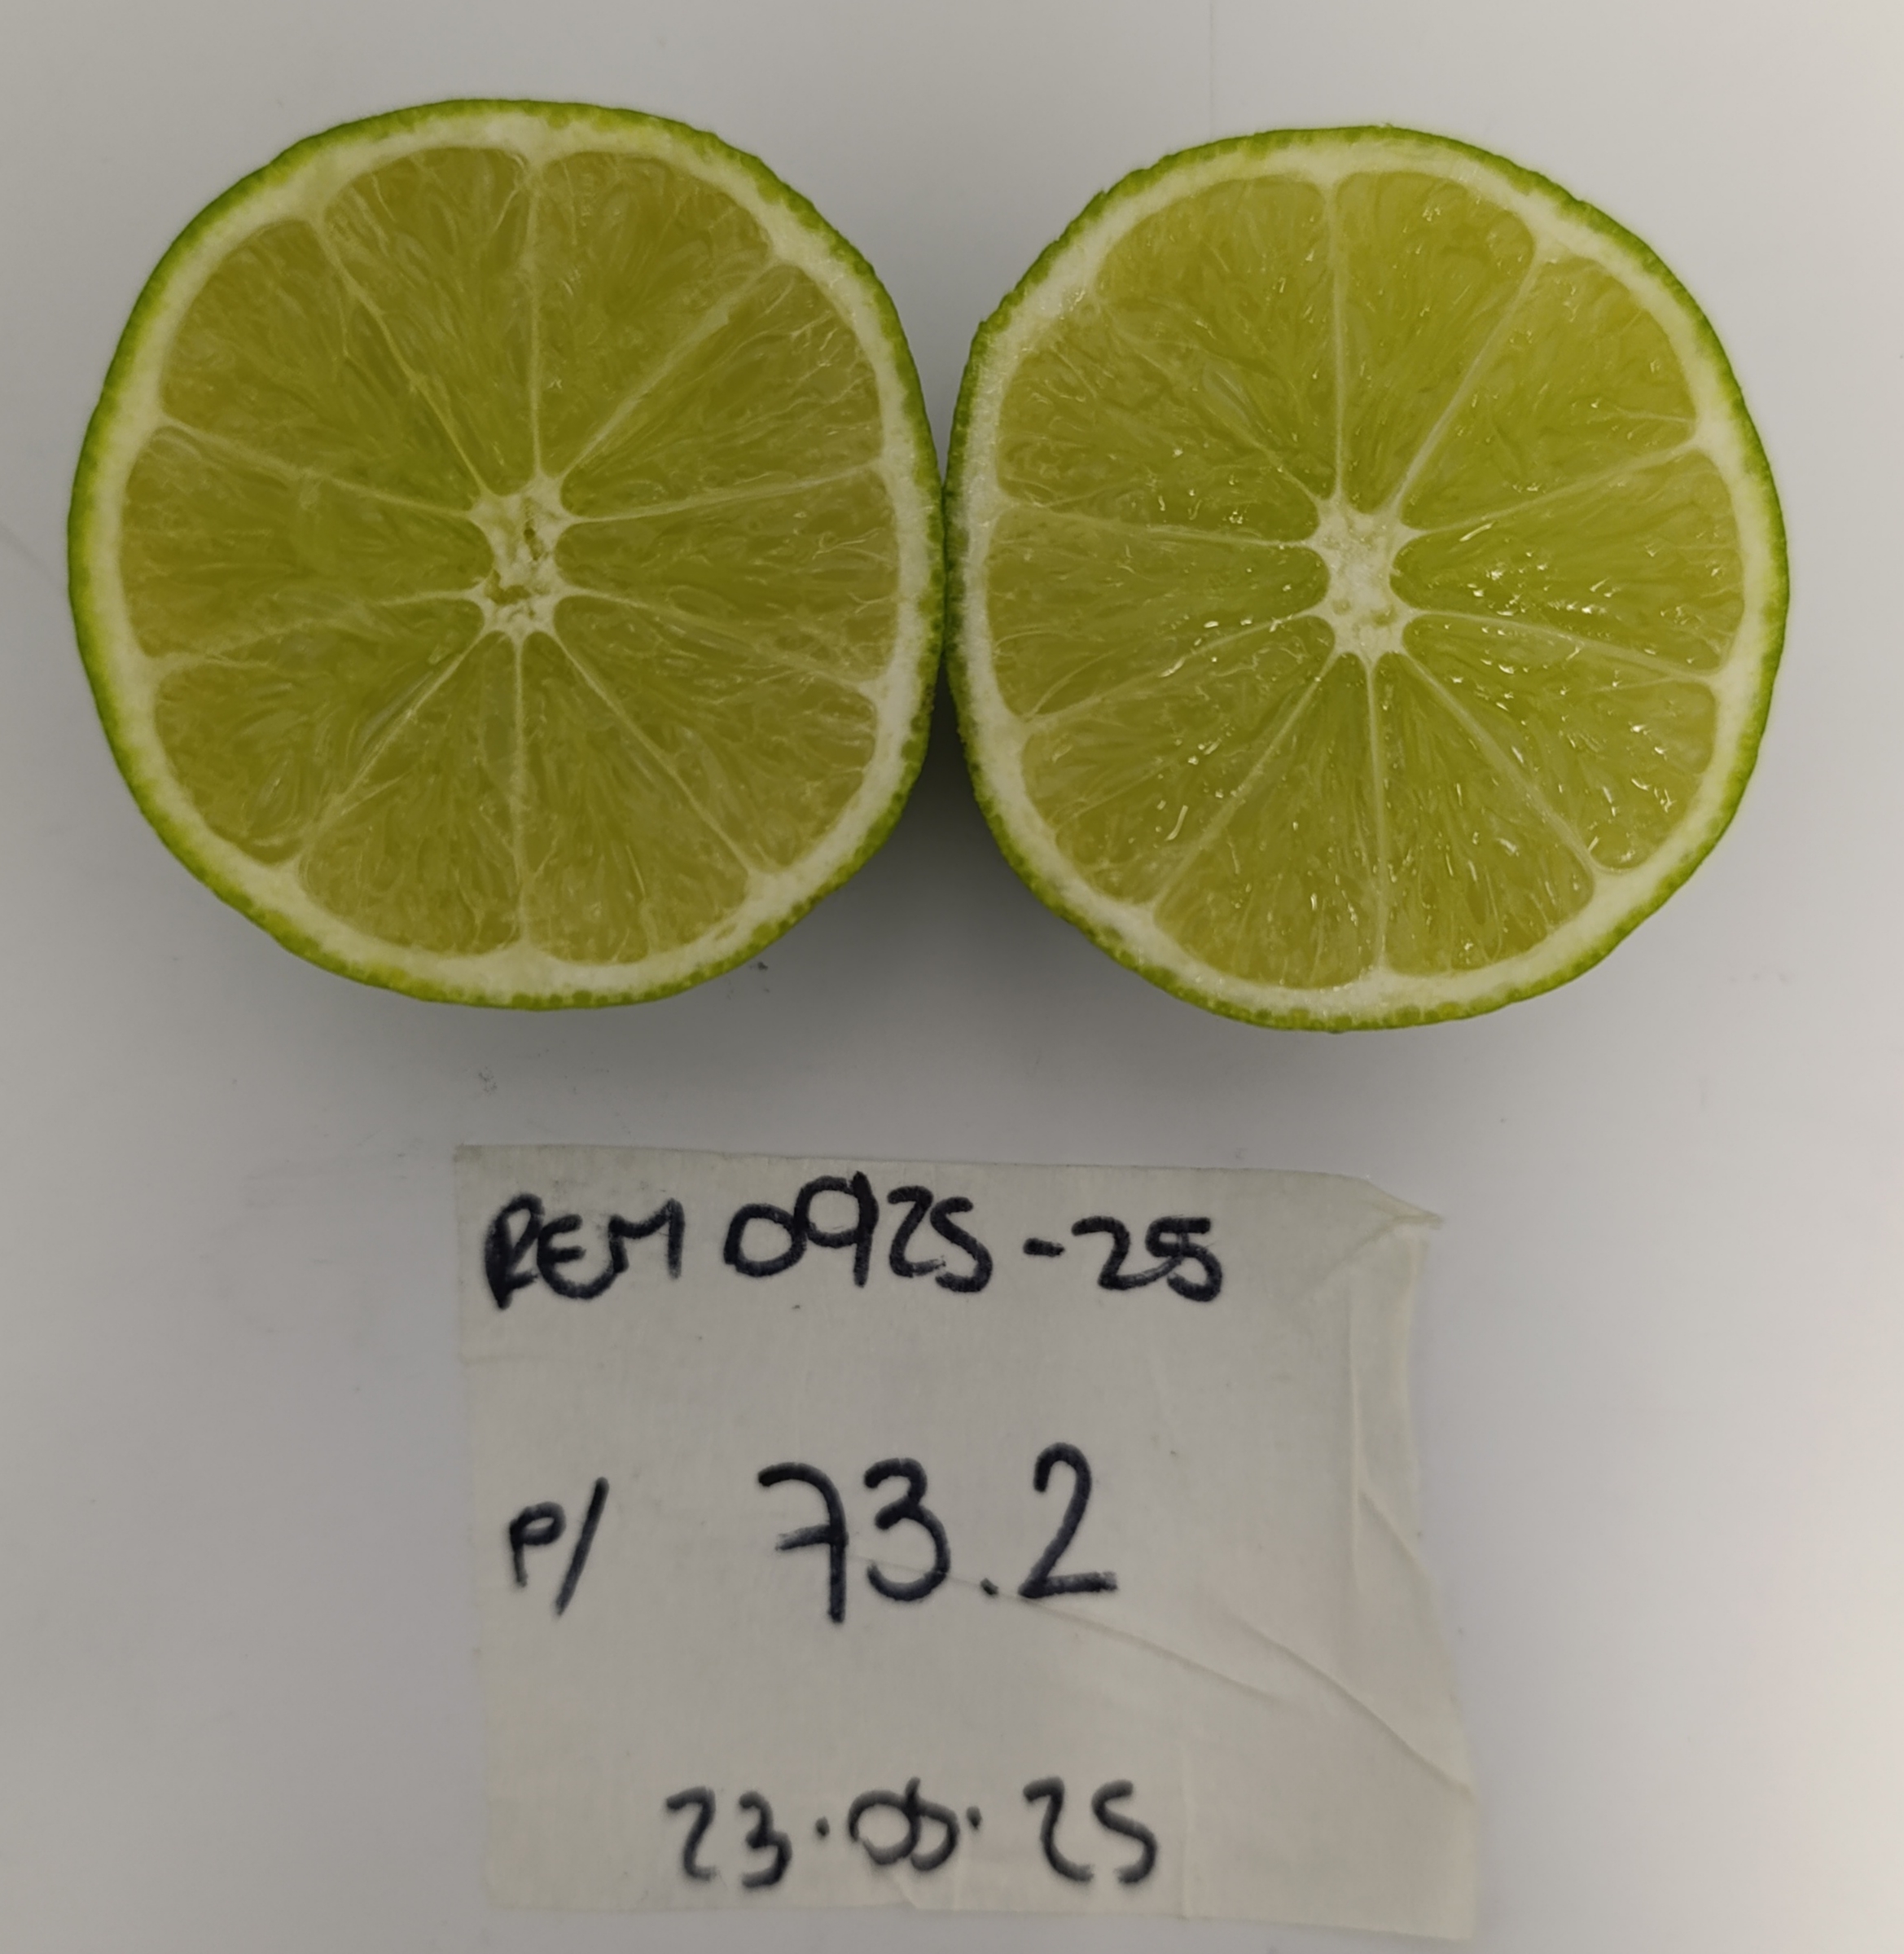 REM 0925-25
P/ 73.2
23.05.25